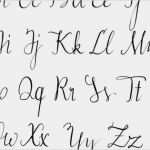 Ii Jj Kk Ll Mm
Oo Qq Rr Ss Tt
Ww Xx Yy Zz